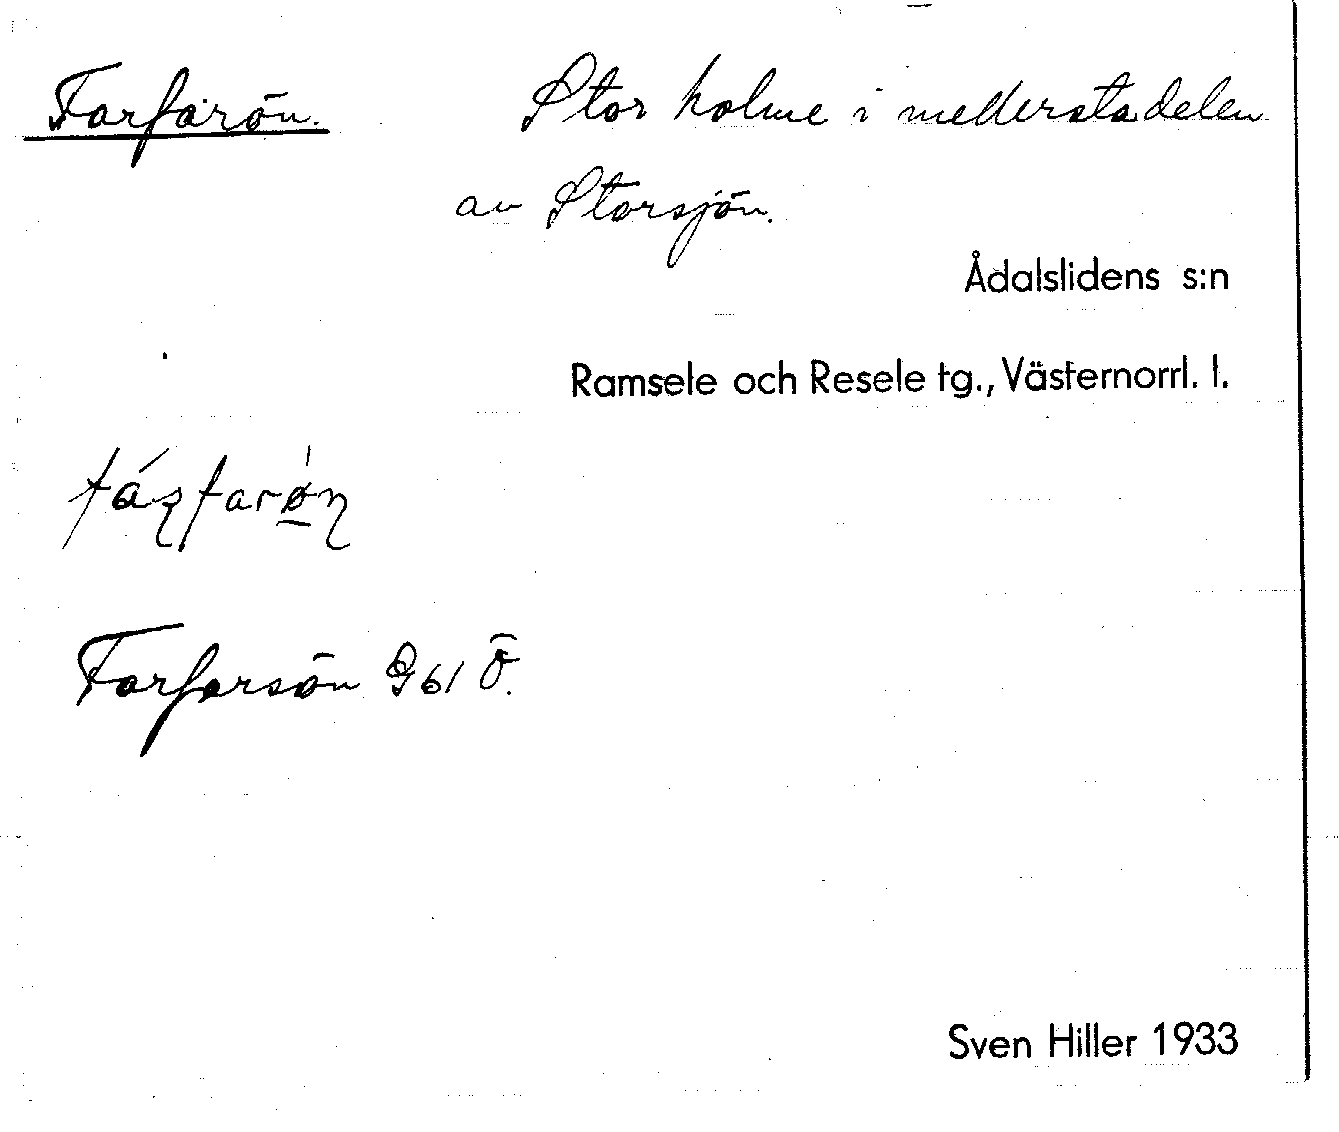 Farfarön. Stor holme i mellersta delen
av Storsjön.
Ådalslidens s:n
Ramsele och Resele tg., Västernorrl. l.
Farfarsön G61 Ö.
Sven Hiller 1933